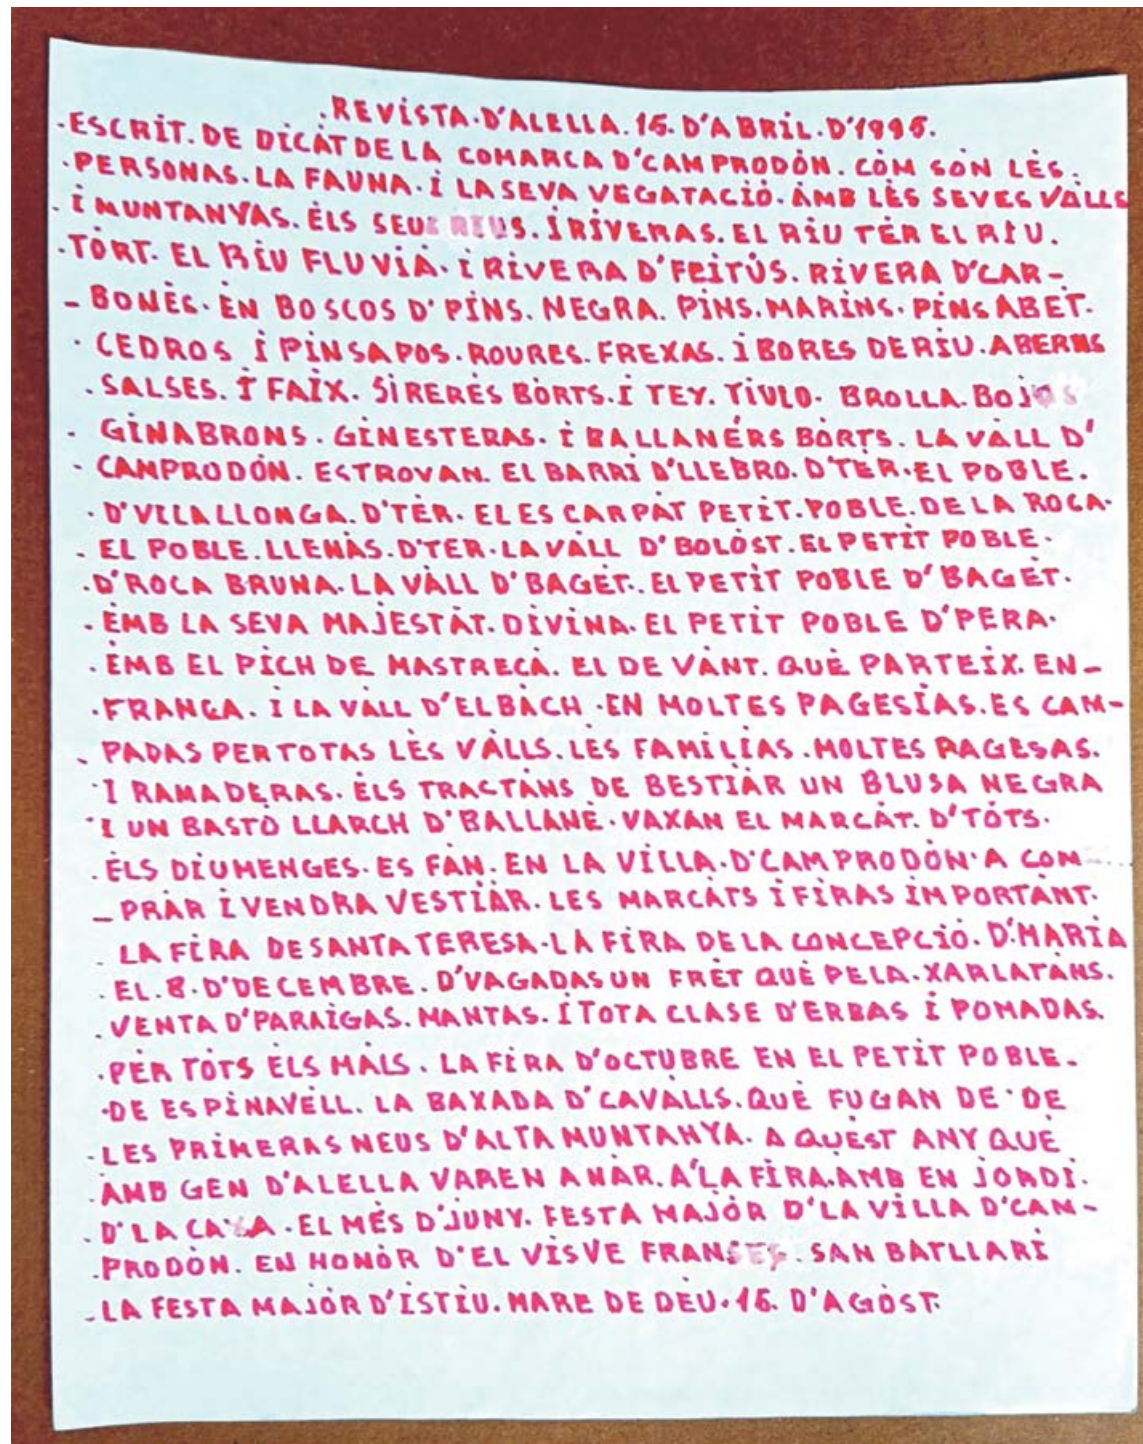 .REVISTA.D'ALELLA.15.D'ABRIL.D'1995.
.ESCRIT.DE DICÀT DE LA COMARCA D'CAMPRODÒN. CÒM SÒN LÈS.
.PERSONAS.LA FAUNA.I LA SEVA VEGATACIÓ.ÀMB LÈS SEVES VÀLLS
.I MUNTANYAS.ÈLS SEUS RIUS.I RIVERAS.EL RIU TÈR EL RIU.
.TÒRT.EL RIU FLUVIÀ.I RIVERA D'FEITÚS.RIVERA D'CAR-
-BONÈS.ÈN BOSCOS D'PINS.NEGRA.PINS.MARINS.PINS ABET.
.CEDROS I PINSAPOS.ROURES.FREXAS.I BORES DE RIU.ABERNS
.SALSES.I FAIX.SIRERÈS BÒRTS.I TEY.TIULO.BROLLA.BOJOS
.GINABRONS.GINESTERAS.I BALLANÉRS BÒRTS.LA VÀLL D'
-CAMPRODÓN.ESTROVAN.EL BARRI D'LLEBRO.D'TÈR.EL POBLE.
.D'VILALLONGA.D'TÈR.EL ESCARPÀT PETIT.POBLE.DE LA ROCA.
-EL POBLE.LLENÀS.D'TER.LA VÀLL D'BOLÒST.EL PETIT POBLE.
.D'ROCA BRUNA.LA VÀLL D'BAGÈT.EL PETIT POBLE D'BAGÈT.
.ÈMB LA SEVA MAJESTÀT.DIVINA.EL PETIT POBLE D'PERA.
.ÈMB EL PICH DE MASTRECÀ.EL DE VÀNT.QUÈ PARTEIX.EN-
.FRANGA.I LA VÀLL D'ELBÀCH.EN MOLTES PAGESÍAS.ES CAM-
-PADAS PER TOTAS LÈS VÀLLS.LÈS FAMILÍAS.MOLTES PAGESAS.
.I RAMADERAS.ÈLS TRACTÀNS DE BESTIÀR UN BLUSA NEGRA
.I UN BASTÒ LLARCH D'BALLANÈ.VAXÀN EL MARCÀT.D'TÓTS.
.ÈLS DIUMENGES.ES FÀN.EN LA VILLA.D'CAMPRODÒN.A COM-
-PRÀR I VENDRA VESTIÀR.LES MARCÀTS I FIRAS IMPORTÀNT.
.LA FIRA DE SANTA TERESA.LA FIRA DE LA CONCEPCIÓ.D'MARIA
.EL.8.D'DECEMBRE.D'VAGADAS UN FRÈT QUÈ PELA.XARLATÀNS.
.VENTA D'PARAIGAS.MANTAS.I TOTA CLASE D'ERBAS I POMADAS.
.PÈR TÒTS ÈLS MÀLS.LA FIRA D'OCTUBRE EN EL PETIT POBLE.
.DE ESPINAVÈLL.LA BAXADA D'CAVÀLLS.QUÈ FUGAN DE DE
.LES PRIMERAS NEUS D'ALTA MUNTANYA.A QUÈST ANY QUÈ
.ÀMB GEN D'ALELLA VAREN ANÀR.A'LA FIRA.AMB EN JORDI.
.D'LA CAXA.EL MÈS D'JUNY.FESTA MAJÒR D'LA VILLA D'CAM-
.PRODÒN.EN HONÒR D'EL VISVE FRANSES.SAN BATLLARI
.LA FESTA MAJÒR D'ISTIU.MARE DE DEU.15.D'AGÒST.